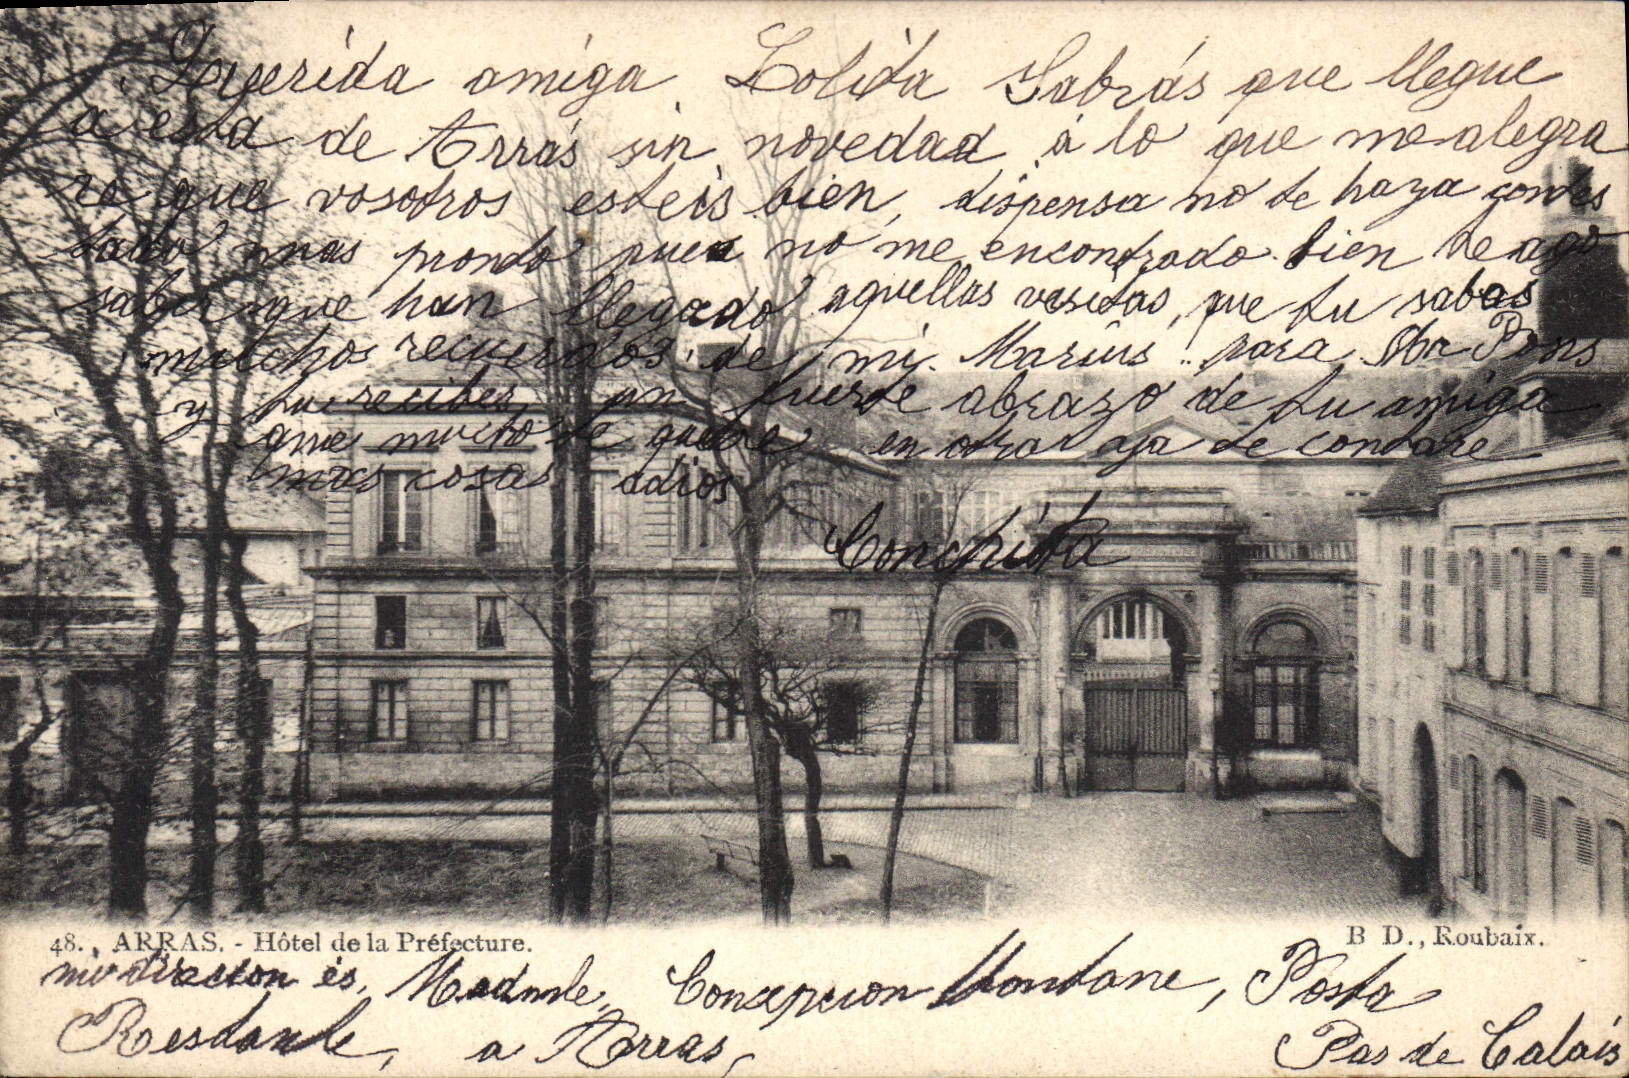 Querida amiga Lolita Sabrás que llegue
a esta de Arrás sin novedad á lo que me alegra
re que vosotros esteis bien, dispensa no te haya contes
tado mas pronto pues no me encontrado bien te ago
saber que han llegado aquellas visitas, que tu sabes
muchos recuerdos de mi Marius para Mr Pons
y tu recibes un fuerte abrazo de tu amiga
que mucho te quiere en otra ya te contare
mas cosas adios
Conchita
48. , ARRAS. - Hôtel de la Préfecture.
B D., Roubaix.
mi direccion és, Madame, Concepcion Montane, Posta
Restante, a Arras, Pas de Calais